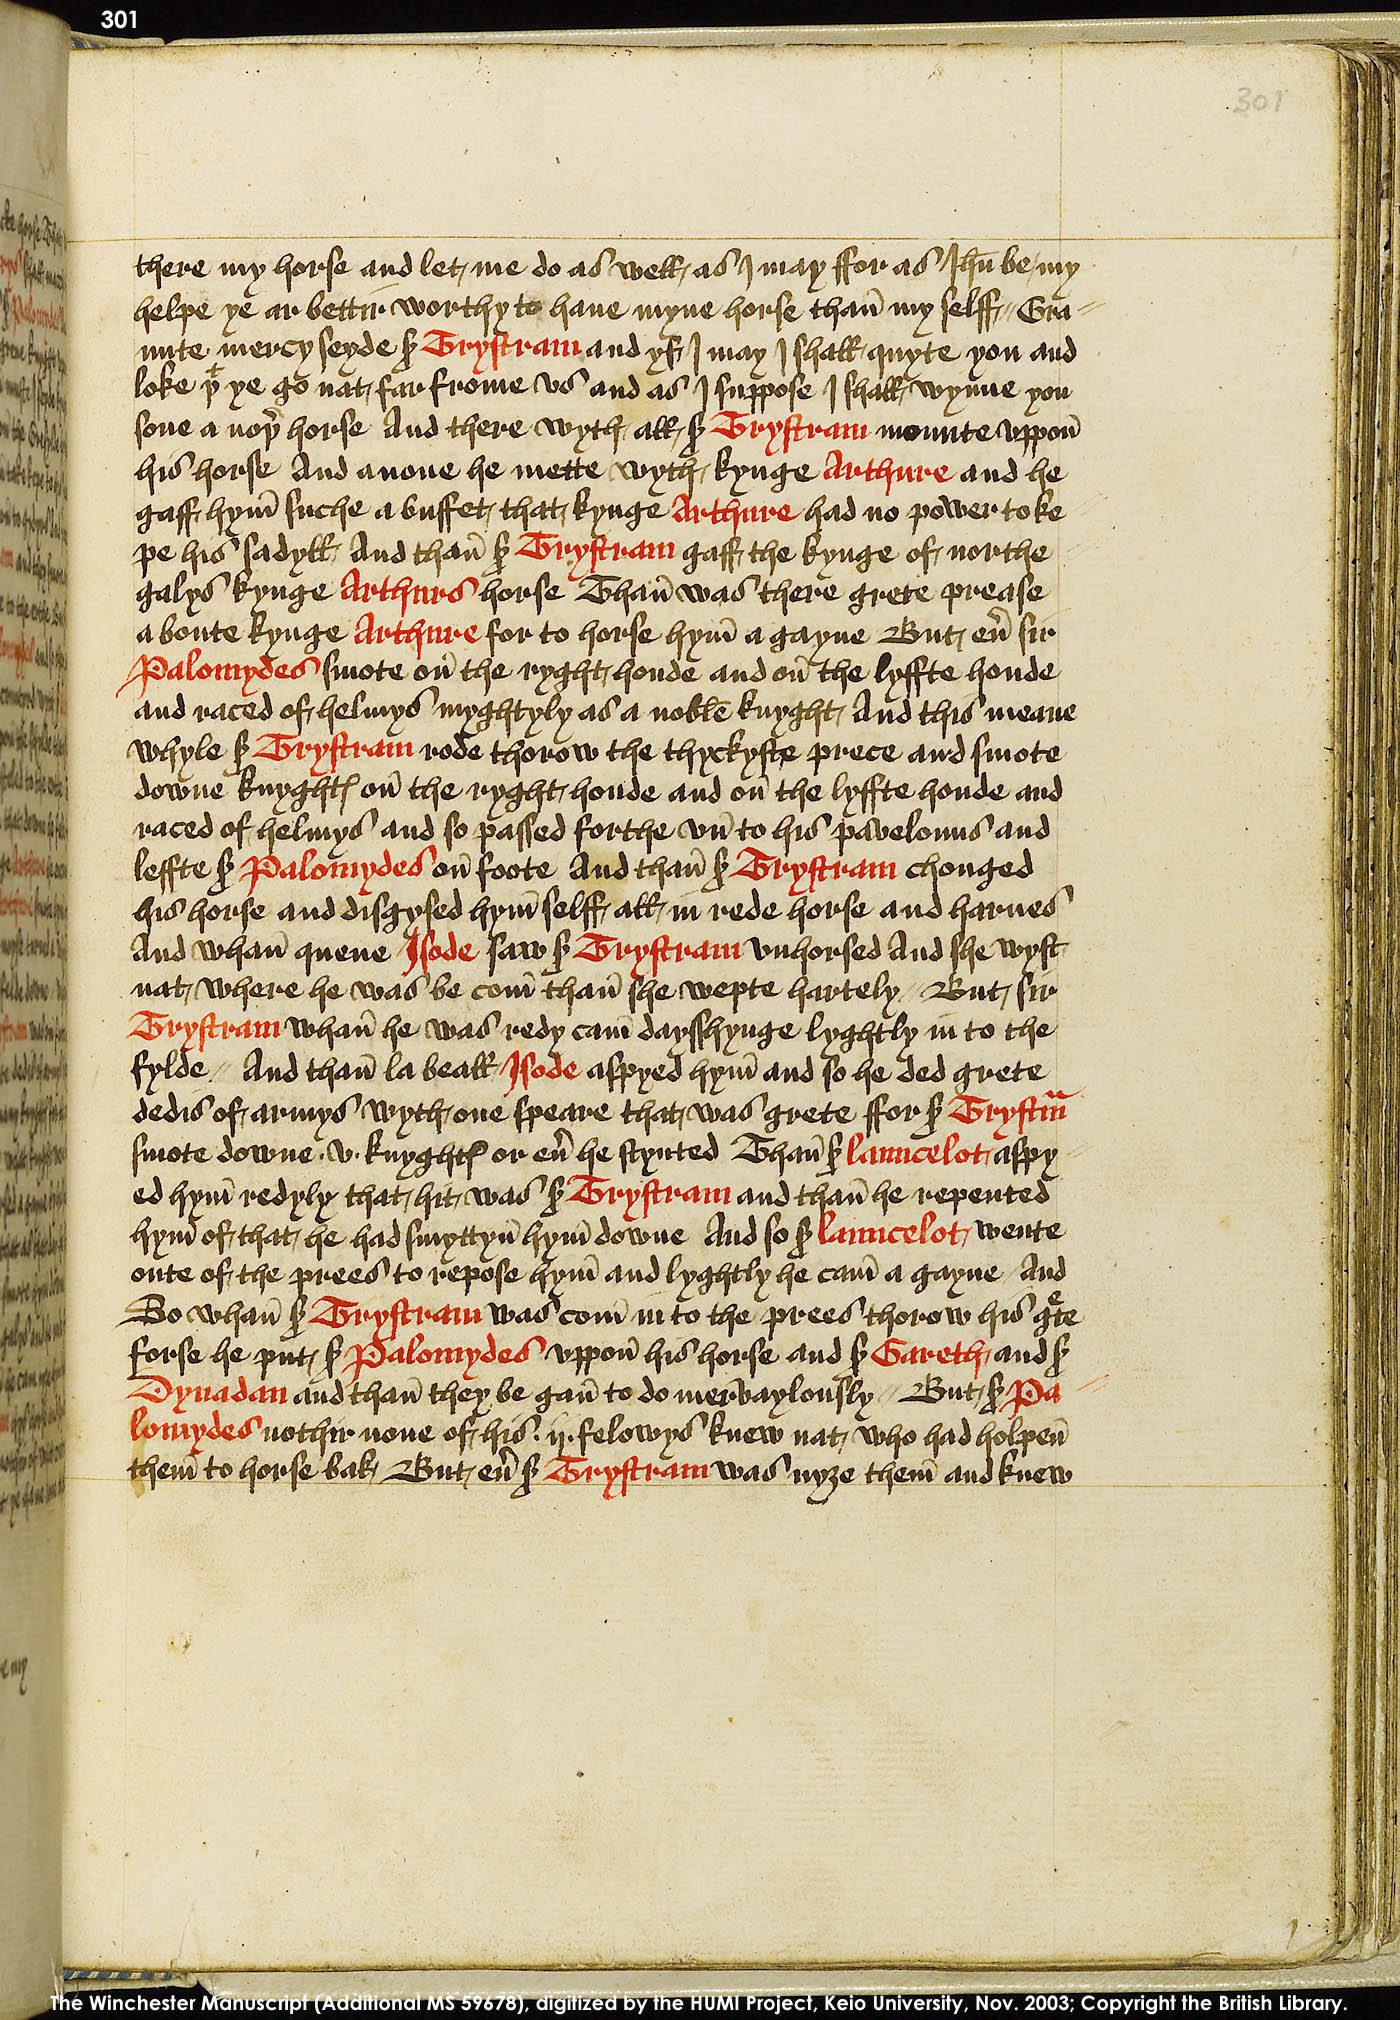 301
301
there my horse and let me do as well as I may ffor as Jhu̅ be my
helpe ye ar bettir worthy to haue myne horse than̅ my selff // Gra-
unte mercy seyde sr̛ Trystram and yf I may I shall quyte you and
loke þt ye go nat far frome vs and as I suppose I shall wynne you
sone a noþ̛ horse And there wyth all sr̛ Trystram mounte vppon̅
his horse And anone he mette wyth kynge Arthure and he
gaff hym̅ suche a buffet that kynge Arthure had no power to ke
pe his sadyll And than̅ sr̛ Trystram gaff the kynge of northe
galys kynge Arthurs horse Than̅ was there grete prease
aboute kynge Arthure for to horse hym̅ a gayne But eư sir
Palomydes smote on̅ the ryght honde and on̅ the lyffte honde
and raced of helmys myghtyly as a noble knyght And this meane
whyle sr̛ Trystram rode thorow the thyckyste prece and smote
downe knyghtꝭ on̅ the ryght honde and on̅ the lyffte honde and
raced of helmys and so passed forthe vn̅ to his pavelouns and
leffte sr̛ Palomydes on̅ foote And than̅ sr̛ Trystram chonged
his horse and disgysed hym̅ selff all in rede horse and harnes
And whan̅ quene Isode saw sr̛ Trystram vnhorsed And she wyst
nat where he was be com̅ than̅ she wepte hartely // But sir
Trystram whan̅ he was redy cam̅ daysshynge lyghtly in to the
fylde // And than̅ la beall Isode aspyed hym̅ and so he ded grete
dedis of armys wyth one speare that was grete ffor sr̛ Trystm̅
smote downe .v. knyghtꝭ or eư he stynted Than̅ sr̛ launcelot aspy
ed hym̅ redyly that hit was sr̛ Trystram and than̅ he repented
hym̅ of that he had smyttyn̅ hym̅ downe And so sr̛ launcelot wente
oute of the prees to repose hym̅ and lyghtly he cam̅ a gayne And
So whan̅ sr̛ Trystram was com̅ in to the prees thorow his gͤte
forse he put sr̛ Palomydes vppon̅ his horse and sr̛ Gareth and sr̛
Dynadan and than̅ they be gan̅ to do mervaylously // But sr̛ Pa-
lomydes nothir none of his .ij. felowys knew nat who had holpen̅
them̅ to horse bak But eư sr̛ Trystram was nyȝe them̅ and knew
The Winchester Manuscript (Additional MS 59678), digitized by the HUMI Project, Keio University, Nov. 2003; Copyright the British Library.